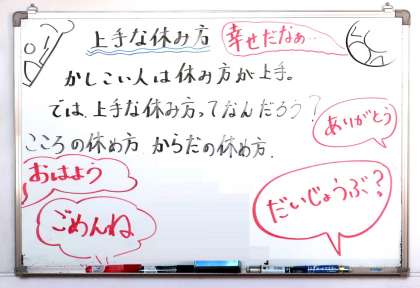 上手な休み方
幸せだなぁ…
かしこい人は休み方が上手。
では、上手な休み方ってなんだろう?
ありがとう
こころの休め方 からだの休め方.
おはよう
ごめんね
だいじょうぶ?